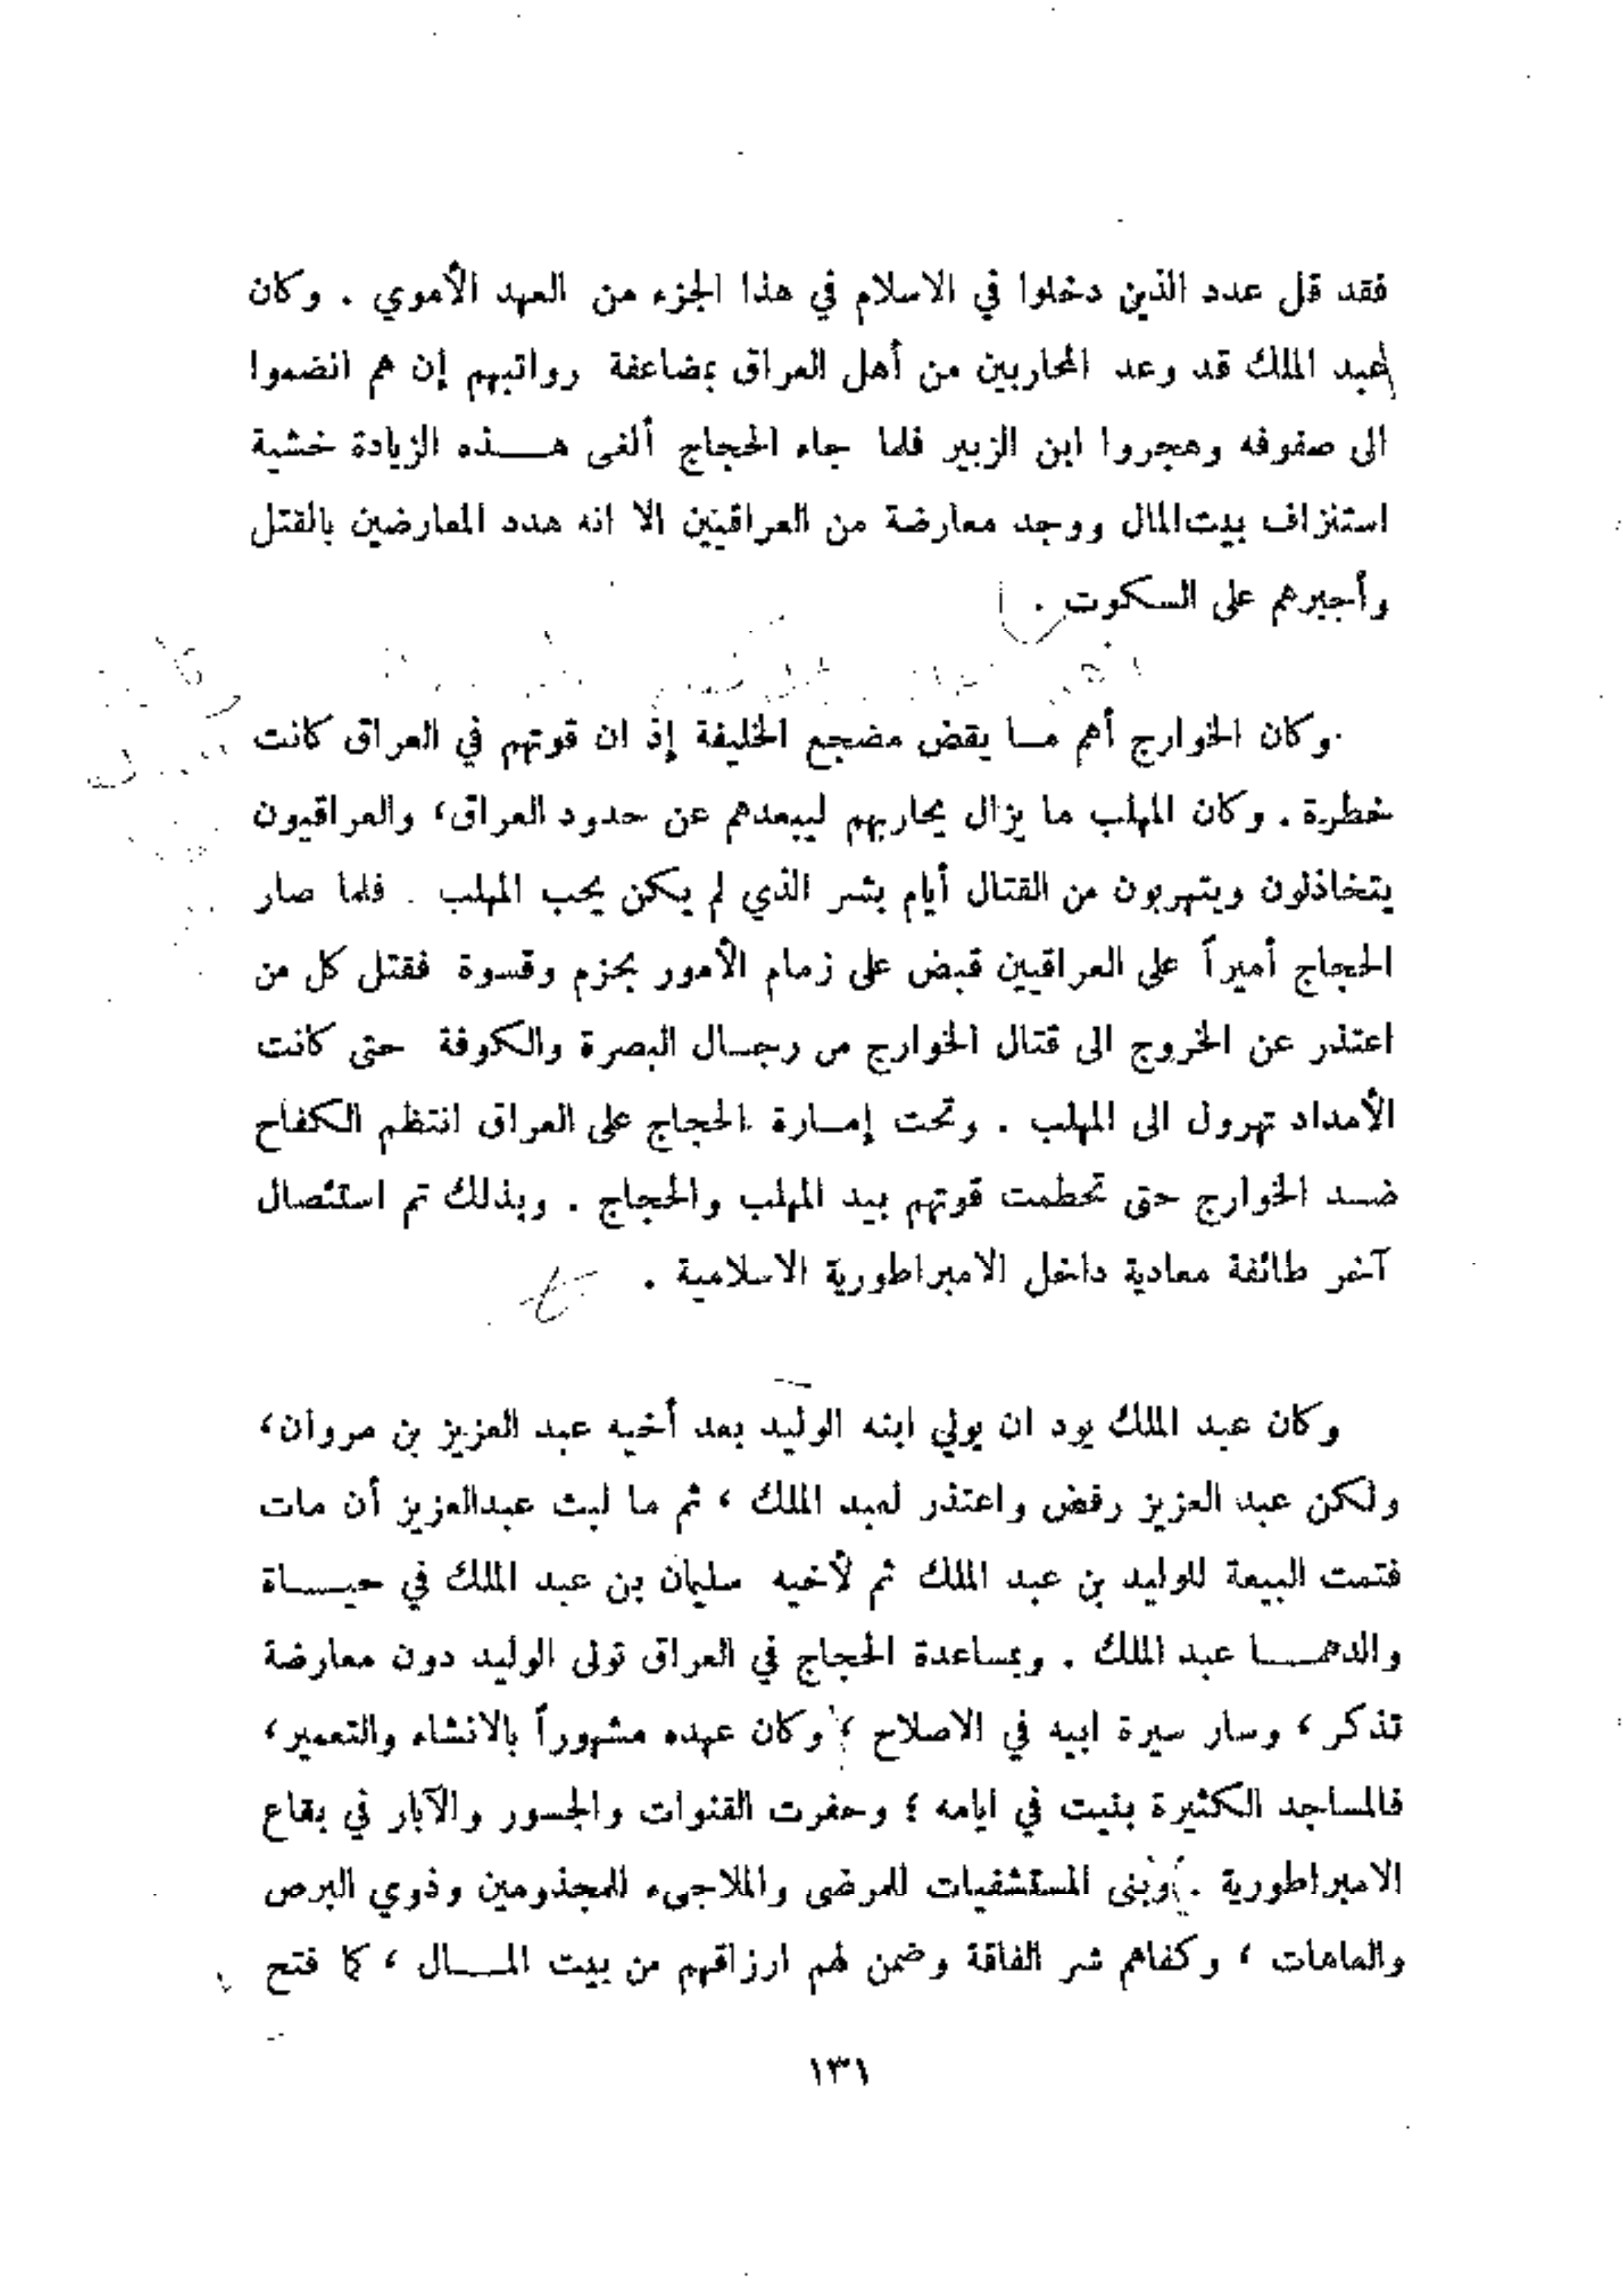 فقد قل عدد الذين دخلوا في الاسلام في هذا الجزء من العهد الأموي . وكان
عبد الملك قد وعد المحاربين من أهل العراق بمضاعفة رواتبهم إن هم انضموا
الى صفوفه وهجروا ابن الزبير فلما جاء الحجاج ألغى هـــذه الزيادة خشية
استنزاف بيت المال ووجد معارضة من العراقيين الا انه هدد المعارضين بالقتل
وأجبرهم على السكوت .
وكان الخوارج أهم مــا يقض مضجع الخليفة إذ ان قوتهم في العراق كانت
خطرة . وكان المهلب ما يزال يحاربهم ليبعدهم عن حدود العراق، والعراقيون
يتخاذلون ويتهربون من القتال أيام بشر الذي لم يكن يحب المهلب . فلما صار
الحجاج أميراً على العراقيين قبض على زمام الأمور بحزم وقسوة فقتل كل من
اعتذر عن الخروج الى قتال الخوارج من رجــال البصرة والكوفة حتى كانت
الأمداد تهرول الى المهلب . وتحت إمــارة الحجاج على العراق انتظم الكفاح
ضــد الخوارج حتى تحطمت قوتهم بيد المهلب والحجاج . وبذلك تم استئصال
آخر طائفة معادية داخل الامبراطورية الاسلامية .
وكان عبد الملك يود ان يولي ابنه الوليد بعد أخيه عبد العزيز بن مروان،
ولكن عبد العزيز رفض واعتذر لعبد الملك ، ثم ما لبث عبدالعزيز أن مات
فتمت البيعة للوليد بن عبد الملك ثم لأخيه سليمان بن عبد الملك في حيـــاة
والدهـــا عبد الملك . وبمساعدة الحجاج في العراق تولى الوليد دون معارضة
تذكر ، وسار سيرة ابيه في الاصلاح ؛ وكان عهده مشهوراً بالانشاء والتعمير،
فالمساجد الكثيرة بنيت في ايامه ؛ وحفرت القنوات والجسور والآبار في بقاع
الامبراطورية . وبنى المستشفيات للمرضى والملاجىء للمجذومين وذوي البرص
والعاهات ، وكفاهم شر الفاقة وضمن لهم ارزاقهم من بيت المـــال ، كما فتح
١٣١